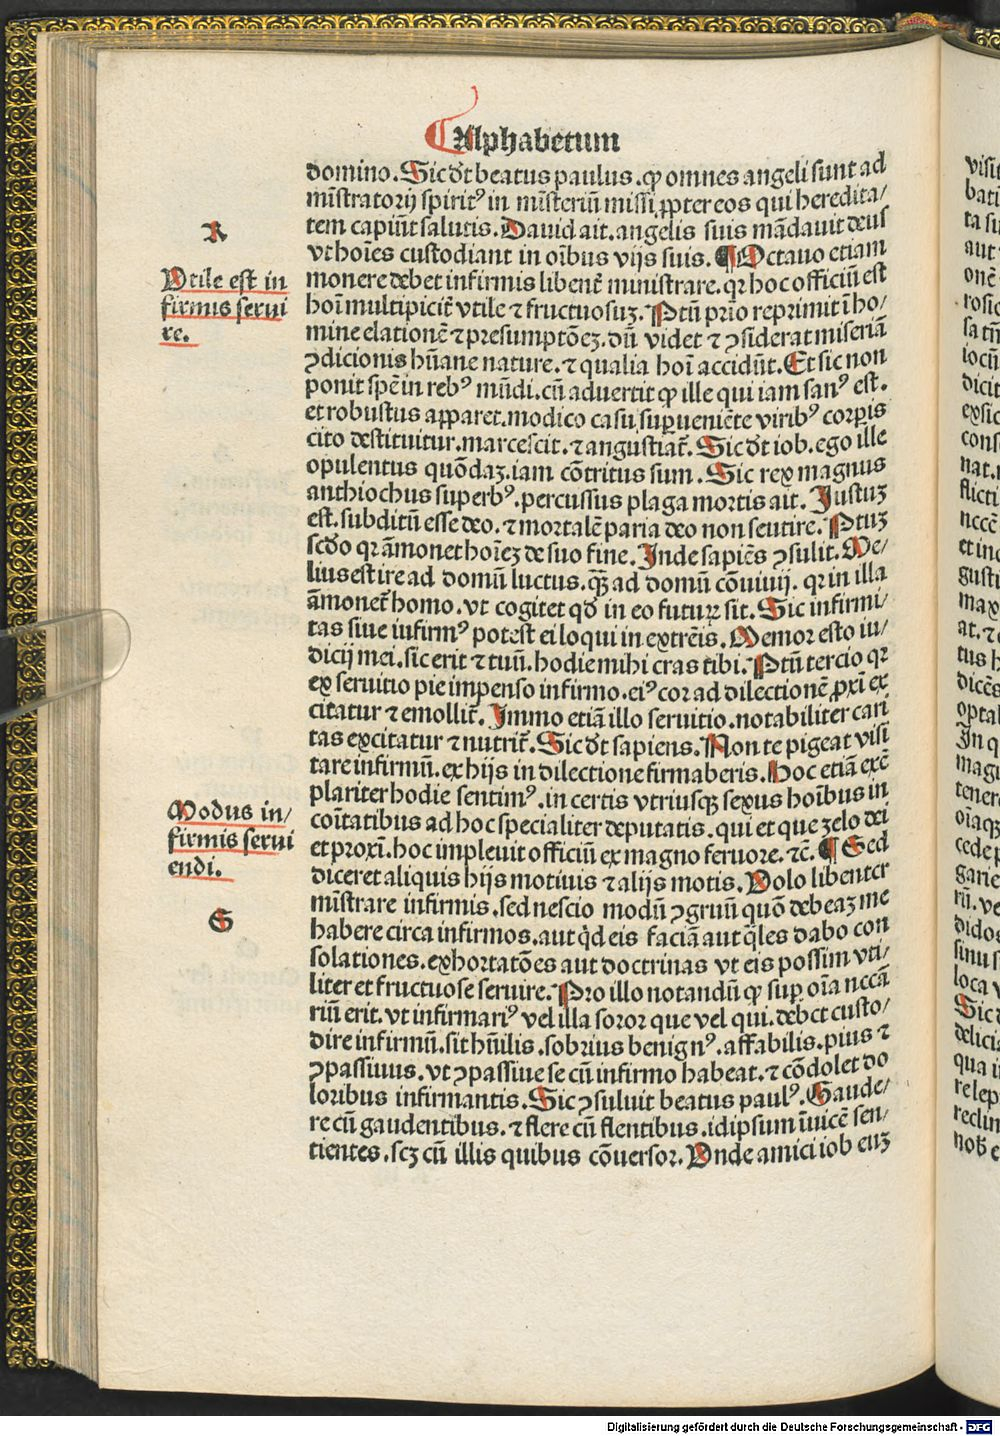 Alphabetum
domino. Sic dt beatus paulus. ꝙ omnes angeli sunt ad
mīstratorij spiritꝰ in mīsteriū missi ꝓpter eos qui heredita/
tem capiūt salutis. Dauid ait. angelis suis mādauit deus
vt hoīes custodiant in oībus vijs suis. ¶ Octauo etiam
monere debet infirmis libent᷑ ministrare. qꝛ hoc officiū est
hoī multipicit᷑ vtile ⁊ fructuosuꝫ. Ptū prīo reprimit ī ho/
mine elationē ⁊ presumptōeꝫ. dū videt ⁊ ꝯsiderat miseriā
ꝯdicionis hūane nature. ⁊ qualia hoī accidūt. Et sic non
ponit spē in rebꝰ mūdi. cū aduertit ꝙ ille qui iam sanꝰ est.
et robustus apparet. modico casu suꝑueniēte viribꝰ corꝑis
cito destituitur. marcescit. ⁊ angustiat᷑. Sic dt iob. ego ille
opulentus quōdaꝫ. iam cōtritus sum. Sic rex magnus
anthiochus superbꝰ. percussus plaga mortis ait. Justuꝫ
est. subditū esse deo. ⁊ mortalē paria deo non seutire. Ptuꝫ
scdo qꝛ āmonet hoīeꝫ de suo fine. Inde sapiēs ꝯsulit. Me/
lius est ire ad domū luctus. qꝫ̄ ad domū cōuiuij. qꝛ in illa
āmonet᷑ homo. vt cogitet qd̄ in eo futurꝝ sit. Sic infirmi/
tas siue iufirmꝰ potest ei loqui in extrēis. Memor esto iu/
dicij mei. sic erit ⁊ tuū. hodie mihi cras tibi. Ptū tercio qꝛ
ex seruitio pie impenso infirmo. eiꝰ cor ad dilectionē ꝓxī ex
citatur ⁊ emollit᷑. Immo etiā illo seruitio. notabiliter cari
tas excitatur ⁊ nutrit᷑. Sic dt sapiens. Non te pigeat visi
tare infirmū. ex hijs in dilectione firmaberis. Hoc etiā exē
plariter hodie sentimꝰ. in certis vtriusqꝫ sexus hoībus in
coītatibus ad hoc specialiter deputatis. qui et que zelo dei
et proxī. hoc impleuit officiū ex magno feruore. ⁊c̄. ¶ Sed
diceret aliquis hijs motiuis ⁊ alijs motis. Volo libenter
mīstrare infirmis. sed nescio modū ꝯgruū quō debeaꝫ me
habere circa infirmos. aut qͥd eis faciā aut q̄les dabo con
solationes. exhortatōes aut doctrinas vt eis possim vti/
liter et fructuose seruire. Pro illo notandū ꝙ suꝑ oīa nccā
riū erit. vt infirmariꝰ vel illa soror que vel qui. debet custo/
dire infirmū. sit hūilis. sobrius benignꝰ. affabilis. pius ⁊
ꝯpassiuus. vt ꝯpassiue se cū infirmo habeat. ⁊ cōdolet do
loribus infirmantis. Sic ꝯsuluit beatus paulꝰ. Gaude/
re cū gaudentibus. ⁊ flere cū flentibus. idipsum īuicē sen/
tientes. scꝫ cū illis quibus cōuersor. Vnde amici iob euꝫ
R
Vtile est in
firmis serui
re.
Modus in/
firmis serui
endi.
S
Digitalisierung gefördert durch die Deutsche Forschungsgemeinschaft - DFG